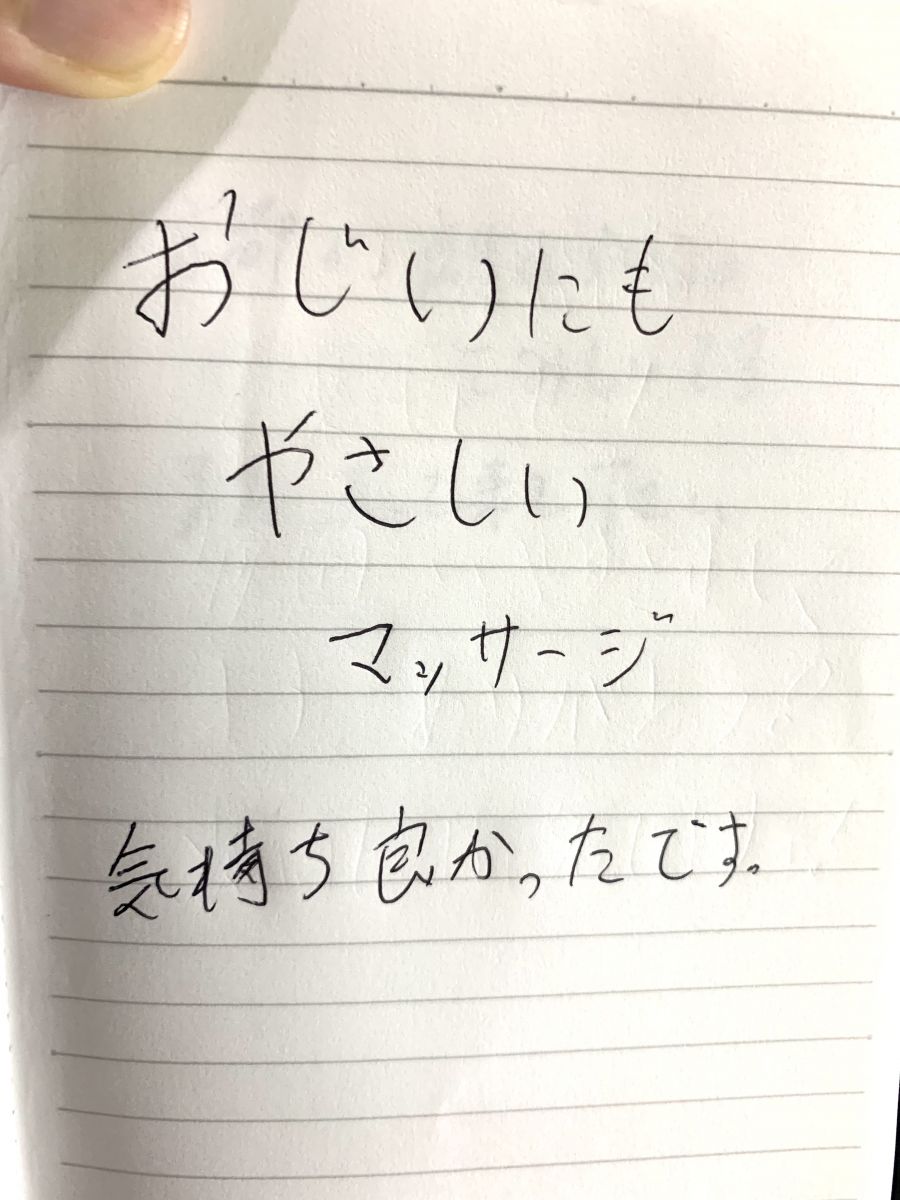 おじいにも
やさしい
マッサージ
気持ち良かったです。